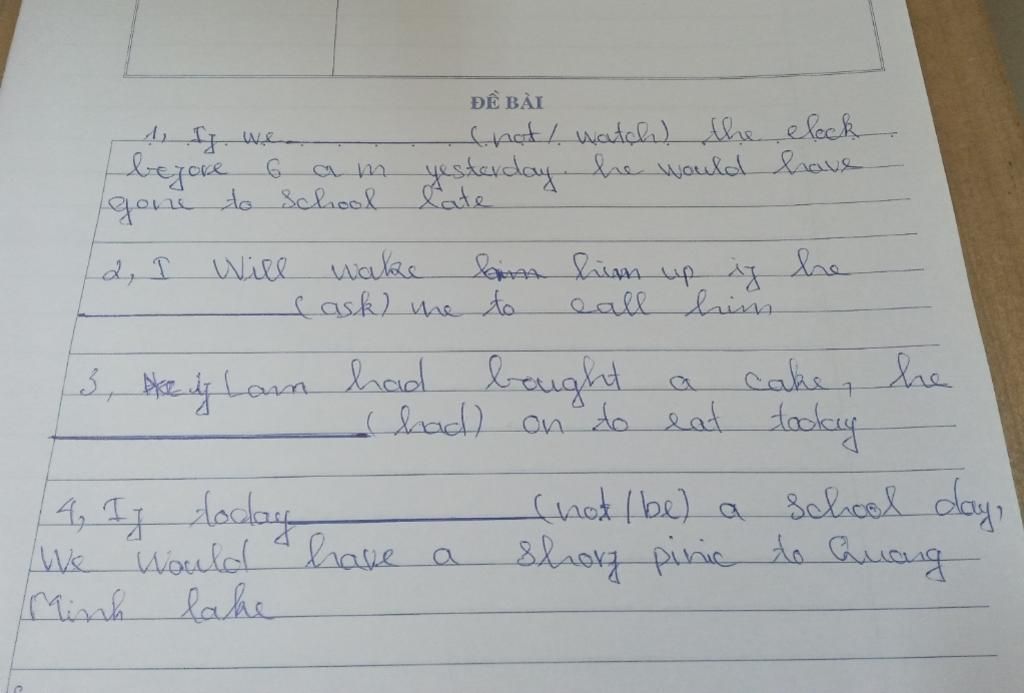 ĐỀ BÀI
1, If we ............ (not / watch) the clock
before 6 a m yesterday. he would have
gone to school late
2, I Will wake him him up if he
____________ (ask) me to call him
3, if Lam had bought a cake, he
____________ (had) on to eat today
4, If today ____________ (not / be) a school day,
We would have a short pinic to Quang
Minh lake